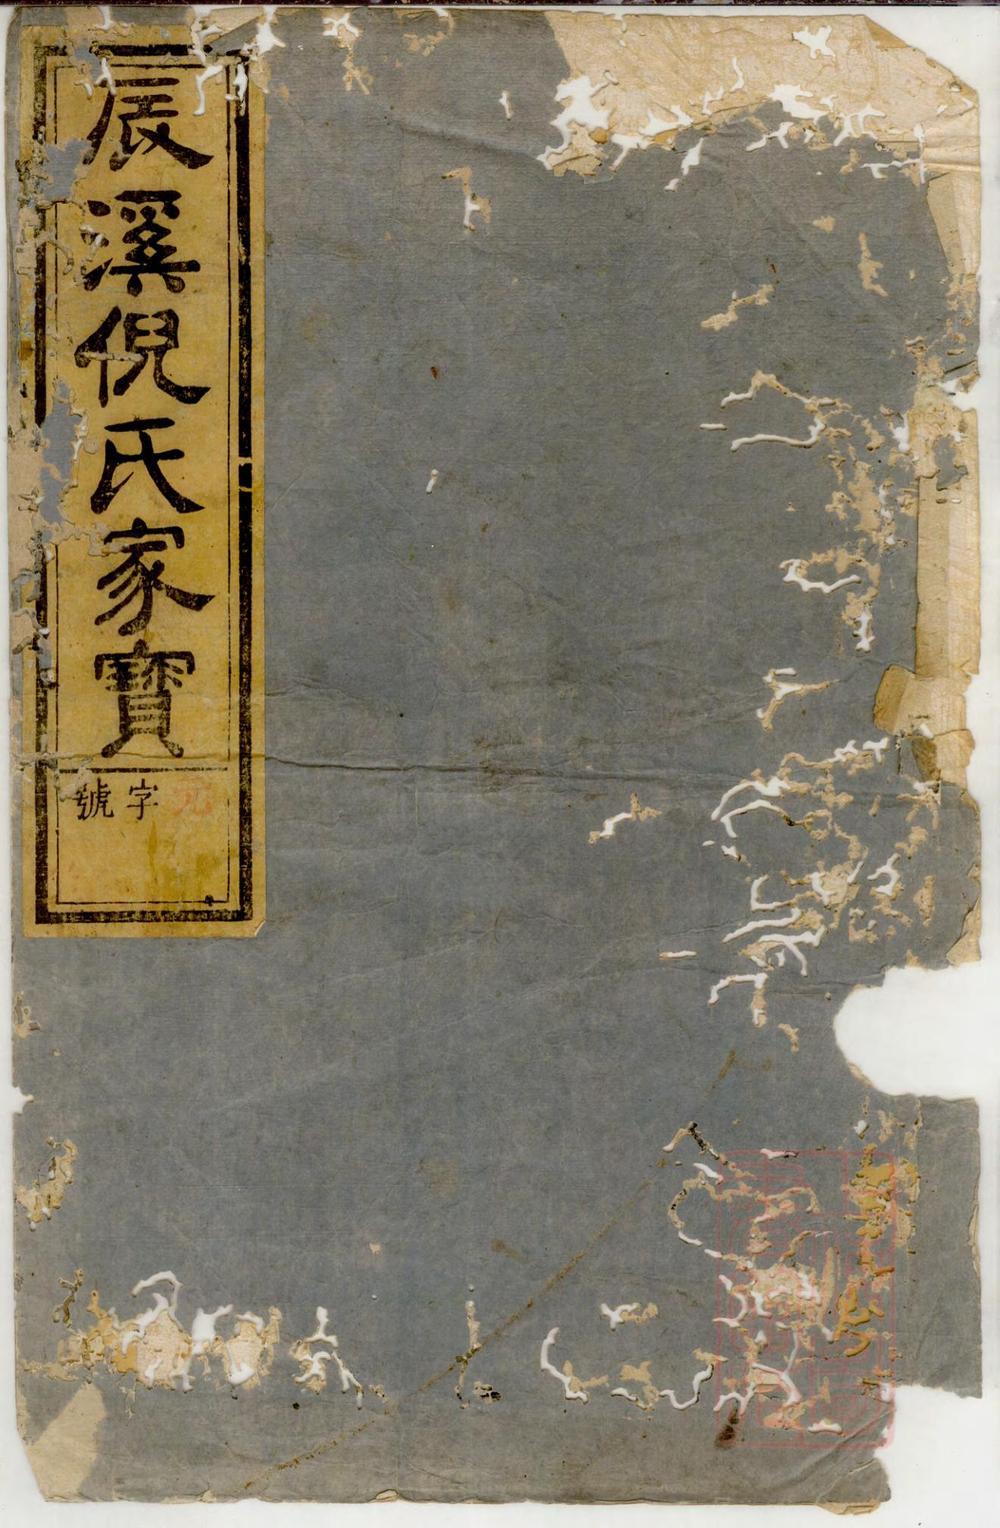 辰溪倪氏家寶
元字號